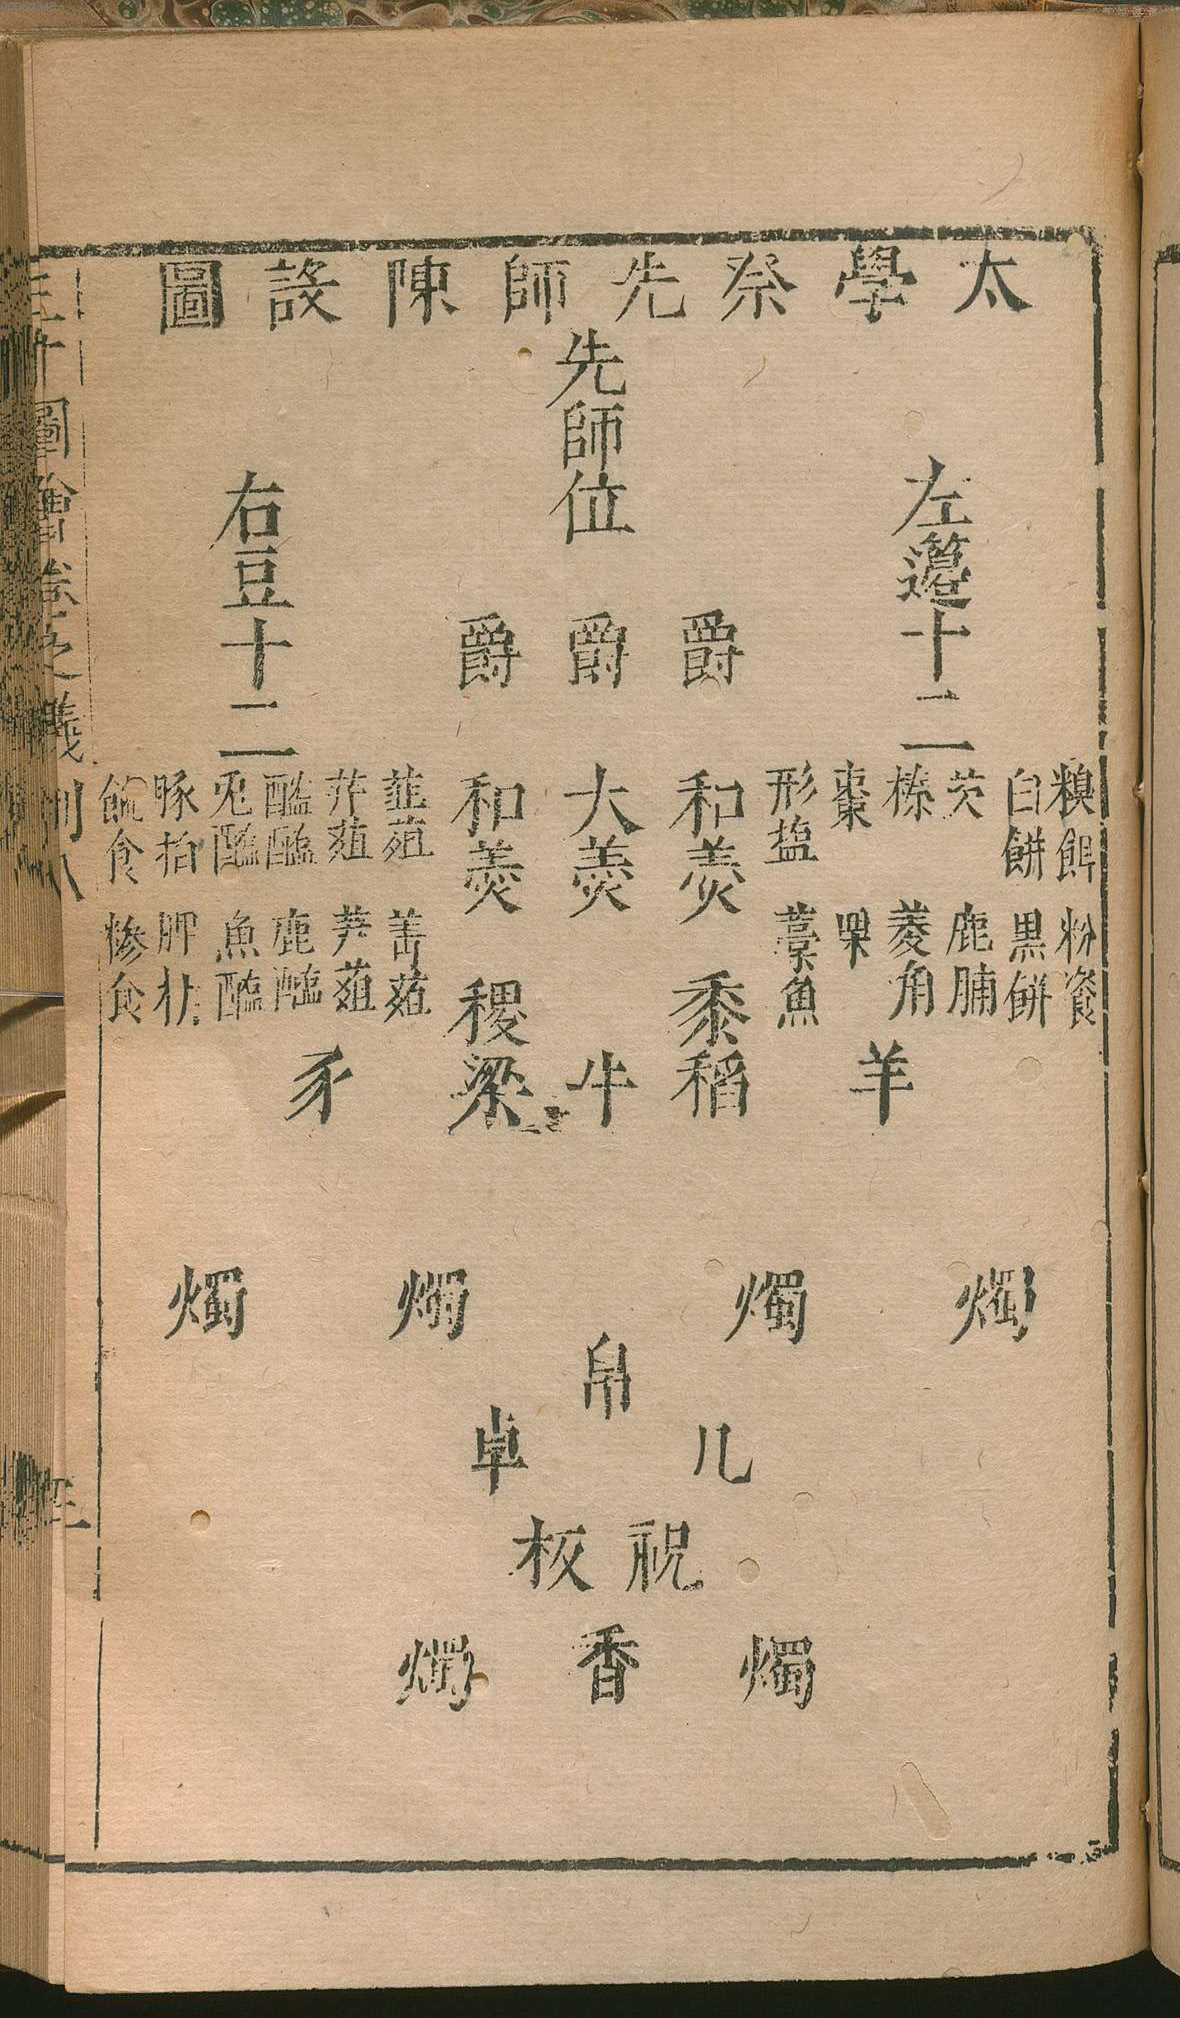 太學祭先師陳設圖
先師位
左籩十二
右豆十二
爵 爵 爵
糗餌 粉餈
白餅 黒餅
芡 鹿脯
榛 菱角
棗 㮚
形塩 藁魚
和羮 黍稻
大羮 牛
和羮 稷梁
韭菹 菁菹
芹菹 笋菹
醓醢 鹿醢
兎醢 魚醢
豚拍 脾析
飽食 糝食
羊
豕
燭 燭 燭 燭
帛
几 卓
祝板
燭 香 燭
三才圖會 儀制八